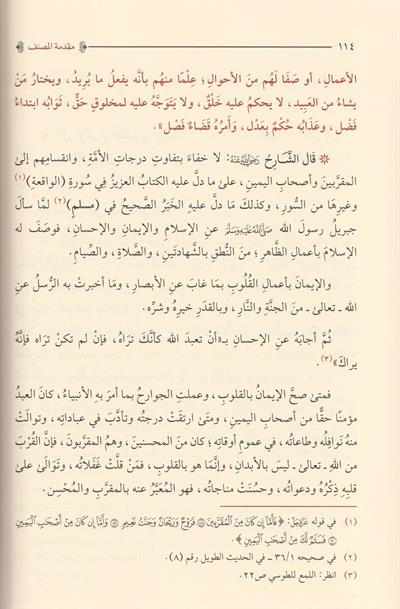 ١١٤ مقدمة المصنف
الأعمالِ، أو صَفَا لَهُم منَ الأحوالِ؛ عِلْمًا منهُم بأنَّه يفعلُ ما يُريدُ، ويختارُ مَنْ
يشاءُ منَ العَبِيد، لا يحكمُ عليه خَلْقٌ، ولا يَتَوَجَّهُ عليه لمخلوقٍ حَقٌّ، ثَوابُه ابتداءُ
فَضْل، وعَذابُه حُكْمٌ بِعَدْل، وَأَمرُهُ قَضَاءُ فَصْل».
* قَالَ الشَّارِحُ رَضِيَ اللهُ عَنْهُ: لا خفاءَ بتفاوتِ درجاتِ الأمَّةِ، وانقسامِهم إلى
المقرَّبينَ وأصحابِ اليمينِ، علىٰ ما دلَّ عليه الكتابُ العزيزُ في سُورةِ (الواقعةِ)(١)
وغيرِها من السُّورِ، وكذلكَ مَا دلَّ عليهِ الخَبَرُ الصَّحيحُ في (مسلم)(٢) لمَّا سألَ
جبريلُ رسولَ الله صَلَّى اللهُ عَلَيْهِ وَسَلَّمَ عنِ الإسلامِ والإيمانِ والإحسانِ، فوصَفَ له
الإسلامَ بأعمالِ الظَّاهرِ؛ منَ النُّطقِ بالشَّهادتَينِ، والصَّلاةِ، والصِّيامِ.
والإيمَانَ بأعمالِ القُلُوبِ بمَا غابَ عنِ الأبصارِ، ومَا أخبرتْ به الرُّسلُ عنِ
الله ـ تعالىٰ ـ منَ الجنَّةِ والنَّارِ، وبالقدَرِ خيرِهُ وشرِّه.
ثُمَّ أجابَهُ عنِ الإحسانِ بـ«أنْ تعبدَ الله كأنَّكَ تَرَاهُ، فإنْ لم تكنْ تراه فإنَّهُ
يراكَ»(٣).
فمتىٰ صحَّ الإيمَانُ بالقلوبِ، وعملتِ الجوارحُ بما أمرَ بهِ الأنبياءُ، كانَ العبدُ
مؤمنًا حقًّا من أصحابِ اليمينِ، ومتَىٰ ارتقَتْ درجتُه وتأدَّبَ في عباداتِه، وتوالَتْ
منهُ نَوافِلُه وطاعَاتُه، في عمومِ أوقاتِه؛ كان منَ المحسنينَ، وهمُ المقرَّبونَ، فإنَّ القُرْبَ
من اللهِ ـ تَعالىٰ ـ ليسَ بالأبدانِ، وإنَّمَا هو بالقلوبِ، فمَنْ قلَّتْ غَفَلاتُه، وتَوَالَىٰ علىٰ
قلبِهِ ذِكْرُهُ ودعواتُه، وحسُنَتْ مناجاتُه، فهو المُعَبَّرُ عنه بالمقرَّبِ والمُحْسِن.
(١) في قوله عَزَّ وَجَلَّ: ﴿فَأَمَّا إِن كَانَ مِنَ ٱلْمُقَرَّبِينَ ۝ فَرَوْحٌ وَرَيْحَانٌ وَجَنَّتُ نَعِيمٍ ۝ وَأَمَّا إِن كَانَ مِنْ أَصْحَٰبِ ٱلْيَمِينِ
۝ فَسَلَٰمٌ لَّكَ مِنْ أَصْحَٰبِ ٱلْيَمِينِ﴾.
(٢) في صحيحه ٣٦/١ ـ في الحديث الطويل رقم (٨).
(٣) انظر: اللمع للطوسي ص٢٢.